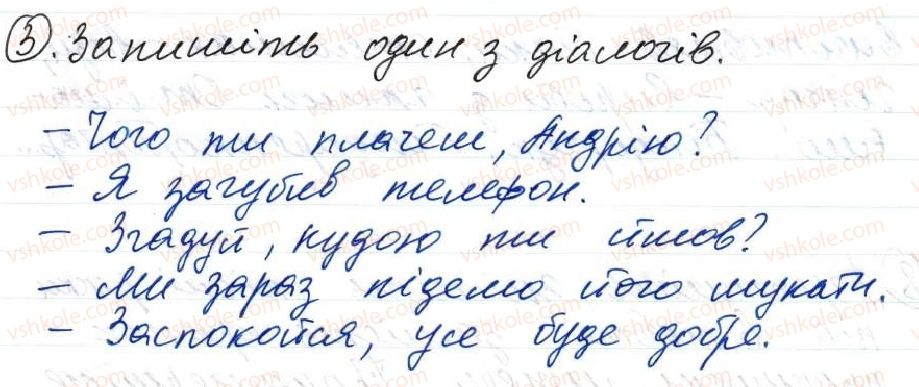 3. Запишіть один з діалогів.
– Чого ти плачеш, Андрію?
– Я загубив телефон.
– Згадуй, кудою ти йшов?
– Ми зараз підемо його шукати.
– Заспокойся, усе буде добре.